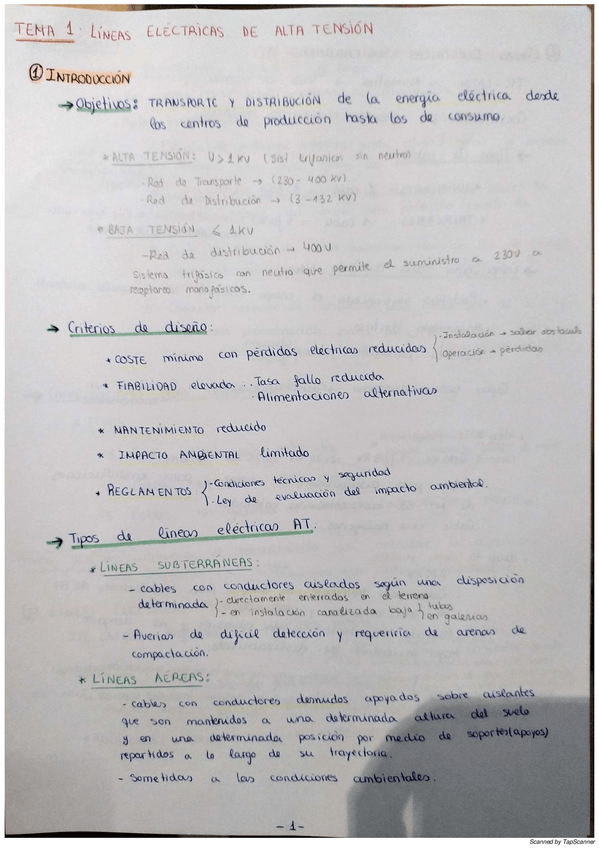 TEMA 1. LÍNEAS ELÉCTRICAS DE ALTA TENSIÓN
① INTRODUCCIÓN
→ Objetivos: TRANSPORTE Y DISTRIBUCIÓN de la energía eléctrica desde
los centros de producción hasta los de consumo.
* ALTA TENSIÓN: U > 1 KV (Sist trifásicos sin neutro)
- Red de Transporte → (230 - 400 KV)
- Red de Distribución → (3 - 132 KV)
* BAJA TENSIÓN ≤ 1KV
- Red de distribución → 400V
Sistema trifásico con neutro que permite el suministro a 230V a
receptores monofásicos.
→ Criterios de diseño:
* COSTE mínimo con pérdidas electricas reducidas { · Instalación → salvar obstáculo
Operación → pérdidas
* FIABILIDAD elevada . . Tasa fallo reducida
. Alimentaciones alternativas
* MANTENIMIENTO reducido
* IMPACTO AMBIENTAL limitado
* REGLAMENTOS { - Condiciones técnicas y seguridad
- Ley de evaluación del impacto ambiental.
→ Tipos de líneas eléctricas AT:
* LÍNEAS SUBTERRÁNEAS:
- cables con conductores aislados según una disposición
determinada { - directamente enterrados en el terreno
- en instalación canalizada bajo { tubos
en galerías
- Averias de dificil detección y requeriría de arenas de
compactación.
* LÍNEAS AÉREAS:
- cables con conductores desnudos apoyados sobre aislantes
que son mantenidos a una determinada altura del suelo
y en una determinada posición por medio de soportes(apoyos)
repartidos a lo largo de su trayectoria.
- Sometidas a las condiciones ambientales.
- 1 -
Scanned by TapScanner